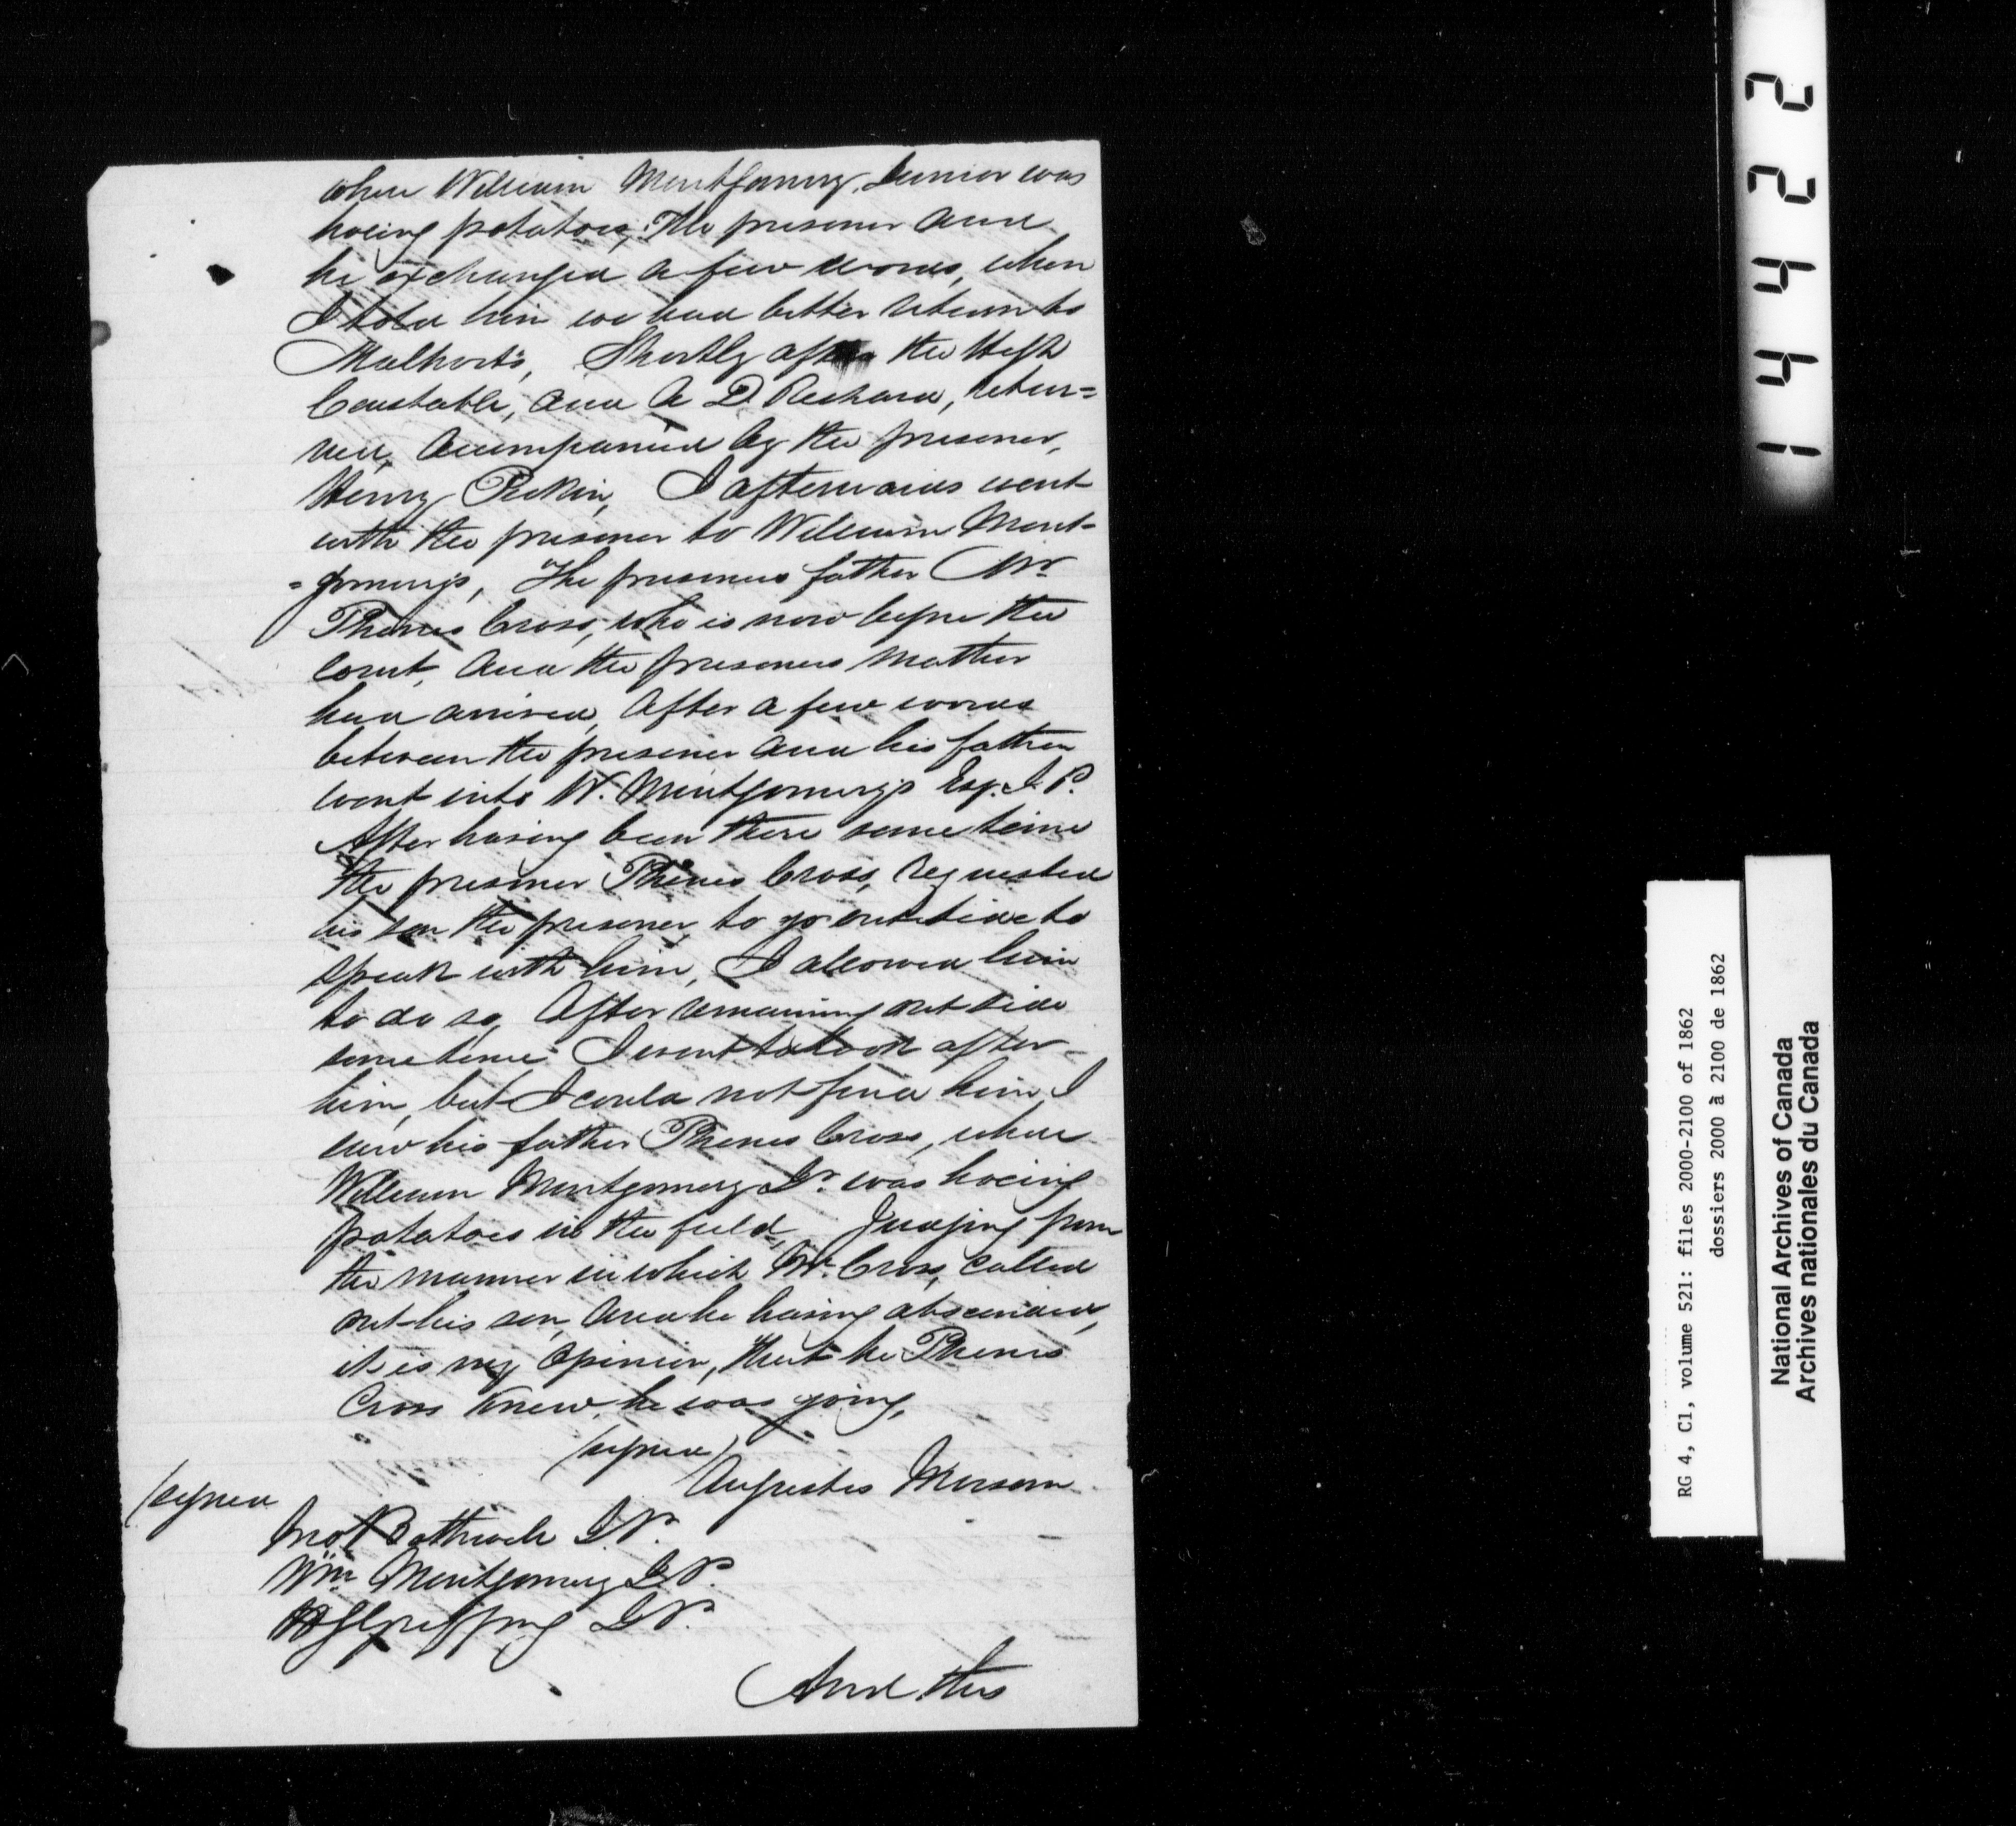 where William Montgomery, Junior was
hoeing potatoes, The prisoner and
he exchanged a few words, when
I told him we had better return to
Malhoit's, Shortly after the High
Constable, and A D Richard, retur=
ned, accompanied by the prisoner,
Henry Perkin, I afterwards went
with the prisoner to William Mont-
=gomery's, The prisoners father Mr.
Phenes Cross, who is now before the
court, and the prisoners mother
had arrived, After a few words
between the prisoner and his father
went into W. Montgomery's Esq. J. P.
After having been there some time
the prisoner Phenes Cross, requested
his son the prisoner, to go outside to
speak with him, I allowed him
to do so, After remaining outside
some time I went to look after
him, but I could not find him, I
saw his father Phenes Cross, where
William Montgomery Jr. was hoeing
potatoes in the field, Judging from
the manner in which Mr. Cross, called
out his son, and he having absconded,
it is my opinion, that he Phenes
Cross knew, he was going,
(signed)
Augustus
(signed
Jno Bothwell J. P.
Wm. Montgomery J. P.
J. P.
And this
14422
RG 4, C1, volume 521: files 2000-2100 of 1862
dossiers 2000 à 2100 de 1862
National Archives of Canada
Archives nationales du Canada